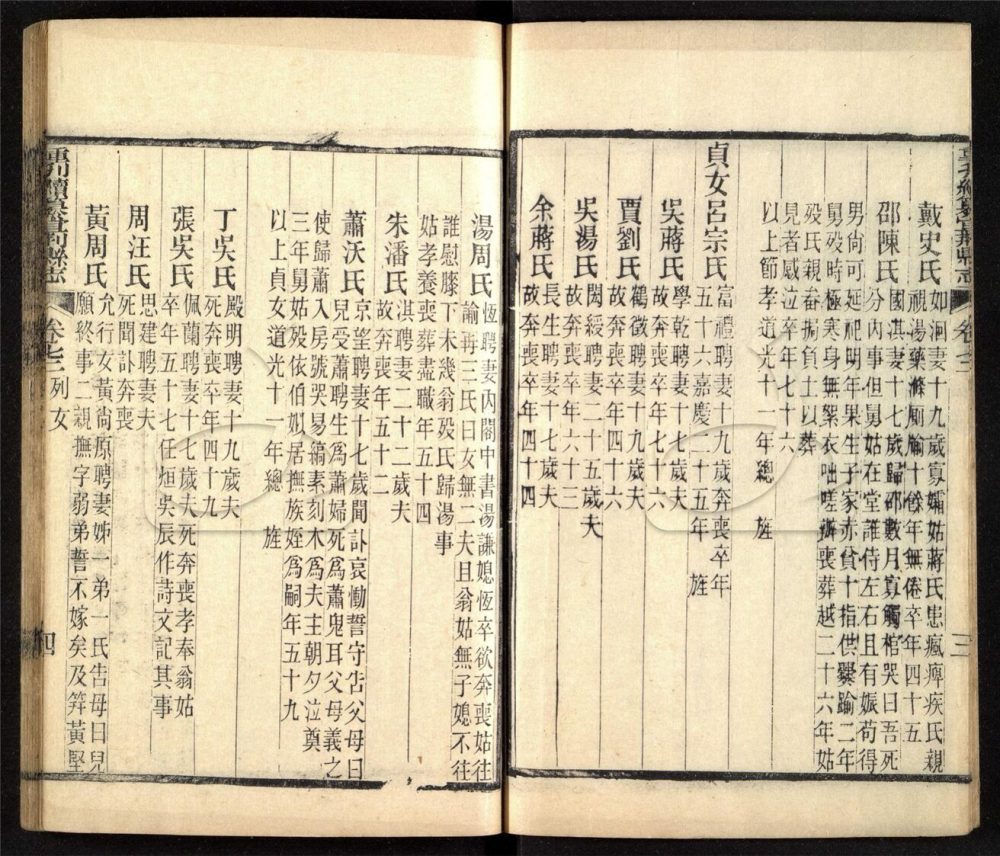 戴史氏如洄妻十九歲寡孀姑蔣氏患瘋痺疾氏親
視湯藥滌廁牏十餘年無倦卒年四十五
邵陳氏國淇妻十七歲歸邵數月寡觸棺哭曰吾死
分內事但舅姑在堂誰侍左右且有娠苟得
男尚可延祀明年果生子家亦貧十指供爨踰二年
舅歿時極寒身無絮衣咄嗟辦喪葬越二十六年姑
歿氏親畚挶負土以葬
見者感泣卒年七十六
以上節孝道光十一年總 旌
貞女呂宗氏富禮聘妻十九歲奔喪卒年
五十六嘉慶二十五年 旌
吳蔣氏學乾聘妻十七歲夫
故奔喪卒年七十六
賈劉氏鶴徵聘妻十九歲夫
故奔喪卒年四十六
吳湯氏閎綬聘妻二十五歲夫
故奔喪卒年六十三
余蔣氏長生聘妻十七歲夫
故奔喪卒年四十四
湯周氏恆聘妻內閣中書湯謙媳恆卒欲奔喪姑往
諭再三氏曰女無二夫且翁姑無子媳不往
誰慰膝下未幾翁歿氏歸湯事
姑孝養喪葬盡職年五十四
朱潘氏淇聘妻二十二歲夫
故奔喪年五十二
蕭沃氏京望聘妻十七歲聞訃哀慟誓守告父母曰
兒受蕭聘生為蕭婦死為蕭鬼耳父母義之
使歸蕭入房號哭易縞素刻木為夫主朝夕泣奠
三年舅姑歿依伯姒居撫族姪為嗣年五十九
以上貞女道光十一年總 旌
丁吳氏殿明聘妻十九歲夫
死奔喪卒年四十九
張吳氏佩蘭聘妻十七歲夫死奔喪孝奉翁姑
卒年五十七任烜吳辰作詩文記其事
周汪氏思建聘妻夫
死聞訃奔喪
黃周氏允行女黃尚原聘妻姊一弟一氏告母曰兒
願終事二親撫字弱弟誓不嫁矣及笄黃堅
重刊續纂宜荊縣志 卷七之三 列女 四